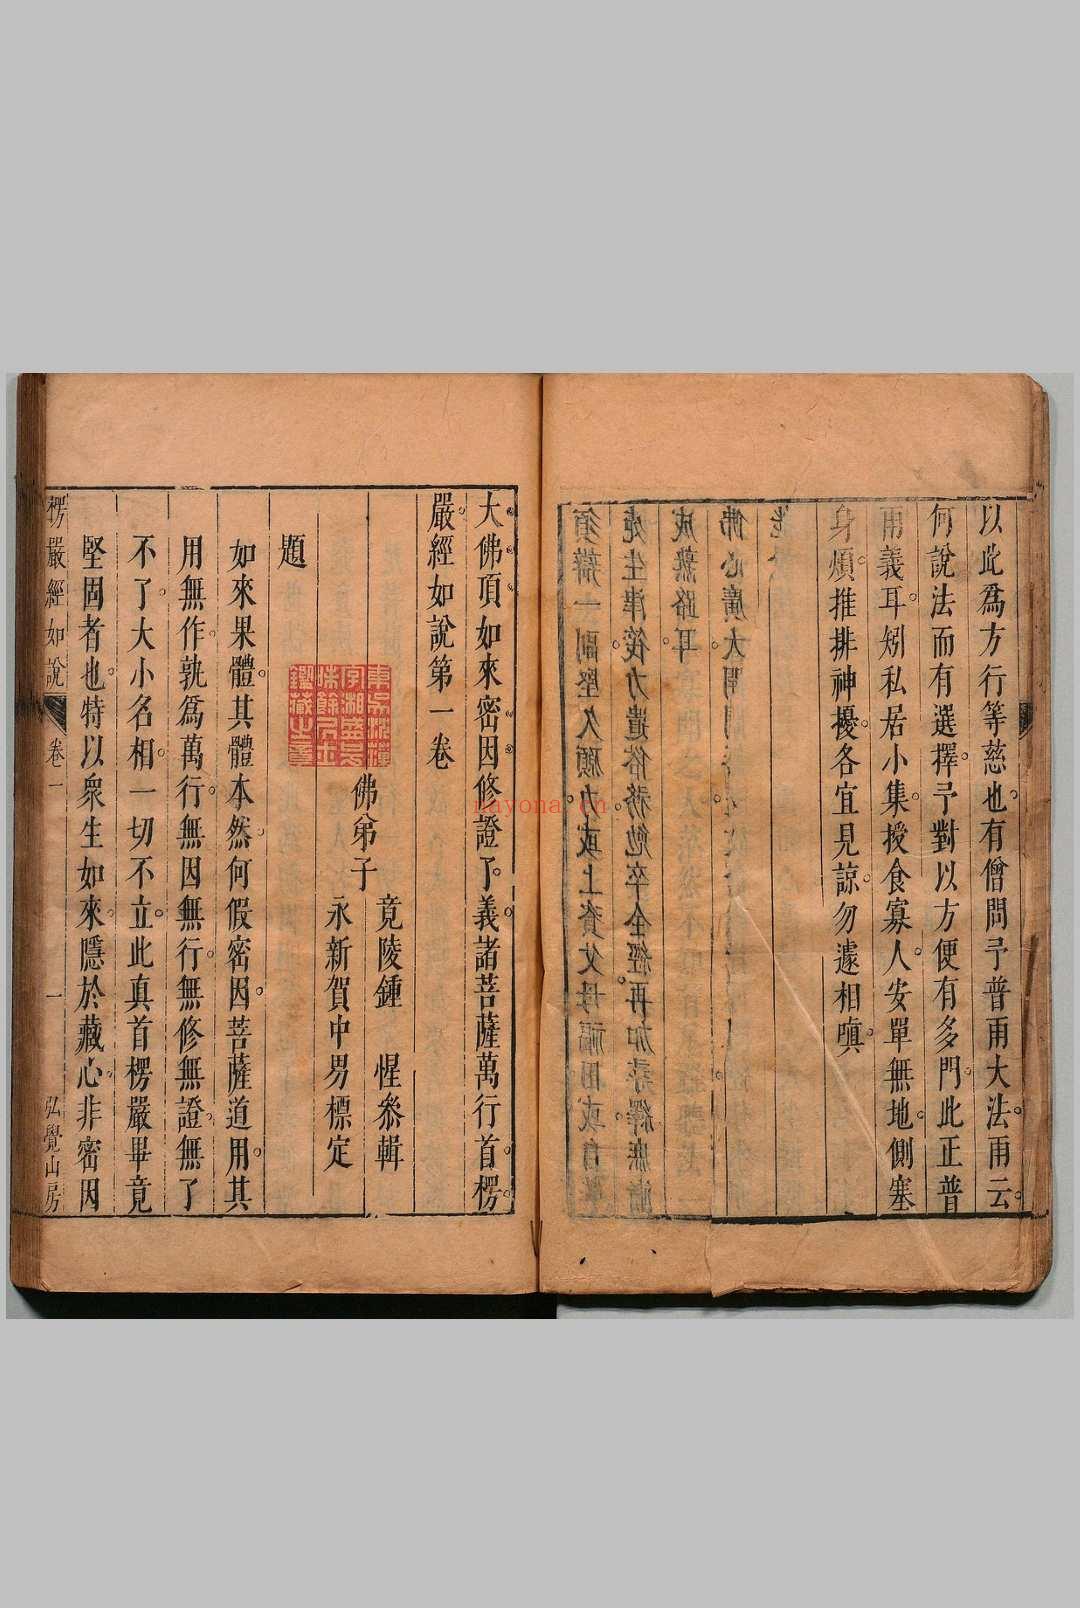 以此爲方行等慈也有僧問予普雨大法雨云
何說法而有選擇予對以方便有多門此正普
雨義耳矧私居小集授食寡人安單無地側塞
身煩推排神擾各宜見諒勿遽相嗔
佛心廣大
成熟路耳
處生津筏力遣俗務勉卒全經再加尋繹庶
須辦一副堅久願力或上資父母福田或自
大佛頂如來密因修證了義諸菩薩萬行首楞
嚴經如說第一卷
竟陵鍾惺叅輯
佛弟子
永新賀中男標定
題
如來果體其體本然何假密因菩薩道用其
用無作孰爲萬行無因無行無修無證無了
不了大小名相一切不立此真首楞嚴畢竟
堅固者也特以衆生如來隱於藏心非密因
楞嚴經如說 卷一 一 弘覺山房
nayona.cn